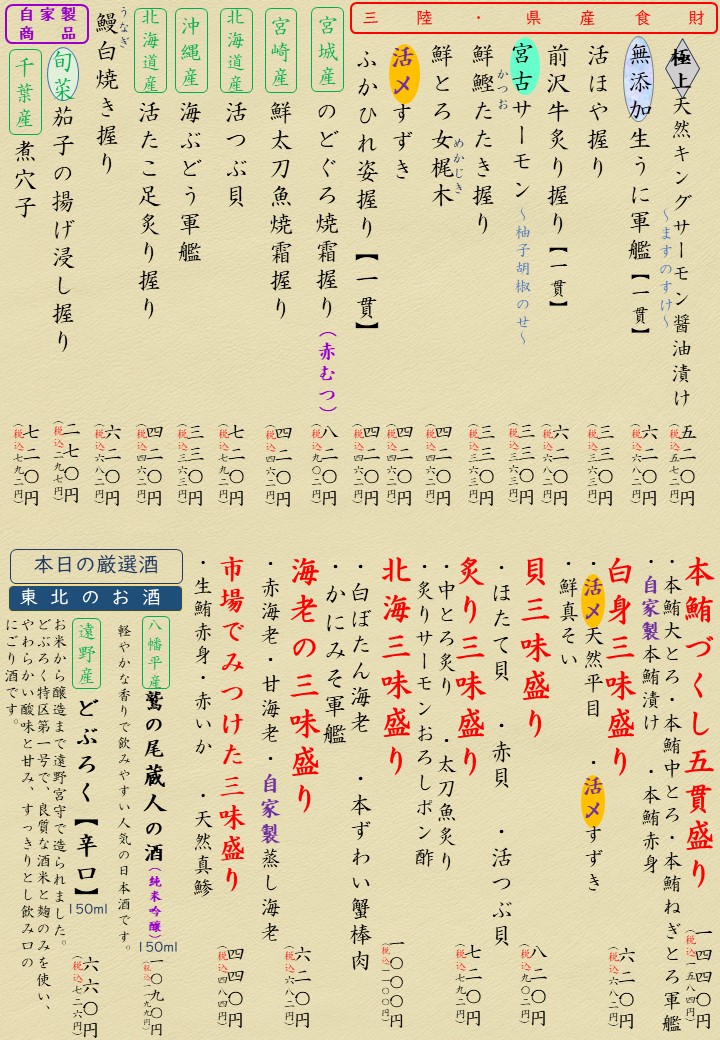 三陸・県産食財
極上天然キングサーモン醤油漬け
～ますのすけ～
五二〇円
(税込五七二円)
無添加生うに軍艦【一貫】
六二〇円
(税込六八二円)
活ほや握り
三三〇円
(税込三六三円)
前沢牛炙り握り【一貫】
六二〇円
(税込六八二円)
宮古サーモン～柚子胡椒のせ～
三三〇円
(税込三六三円)
鮮鰹たたき握り
かつお
三三〇円
(税込三六三円)
鮮とろ女梶木
めかじき
四二〇円
(税込四六二円)
活〆すずき
四二〇円
(税込四六二円)
ふかひれ姿握り【一貫】
四二〇円
(税込四六二円)
宮城産のどぐろ焼霜握り(赤むつ)
八二〇円
(税込九〇二円)
宮崎産鮮太刀魚焼霜握り
四二〇円
(税込四六二円)
北海道産活つぶ貝
七二〇円
(税込七九二円)
沖縄産海ぶどう軍艦
三三〇円
(税込三六三円)
北海道産活たこ足炙り握り
四二〇円
(税込四六二円)
鰻白焼き握り
うなぎ
六二〇円
(税込六八二円)
自家製商品
旬菜茄子の揚げ浸し握り
二七〇円
(税込二九七円)
千葉産煮穴子
七二〇円
(税込七九二円)
本鮪づくし五貫盛り
一四四〇円
(税込一五八四円)
・本鮪大とろ・本鮪中とろ・本鮪ねぎとろ軍艦
・自家製本鮪漬け・本鮪赤身
白身三味盛り
六二〇円
(税込六八二円)
・活〆天然平目・活〆すずき
・鮮真そい
貝三味盛り
八二〇円
(税込九〇二円)
・ほたて貝・赤貝・活つぶ貝
炙り三味盛り
七二〇円
(税込七九二円)
・中とろ炙り・太刀魚炙り
・炙りサーモンおろしポン酢
北海三味盛り
一〇〇〇円
(税込一一〇〇円)
・白ぼたん海老・本ずわい蟹棒肉
・かにみそ軍艦
海老の三味盛り
六二〇円
(税込六八二円)
・赤海老・甘海老・自家製蒸し海老
市場でみつけた三味盛り
四四〇円
(税込四八四円)
・生鮪赤身・赤いか・天然真鯵
本日の厳選酒
東北のお酒
八幡平産鷲の尾蔵人の酒(純米吟醸)150ml
一〇九〇円
(税込一一九九円)
軽やかな香りで飲みやすい人気の日本酒です。
遠野産どぶろく【辛口】150ml
六六〇円
(税込七二六円)
お米から醸造まで遠野宮守で造られました。
どぶろく特区第一号で、良質な酒米と麹のみを使い、
やわらかい酸味と甘み、すっきりとし飲み口の
にごり酒です。